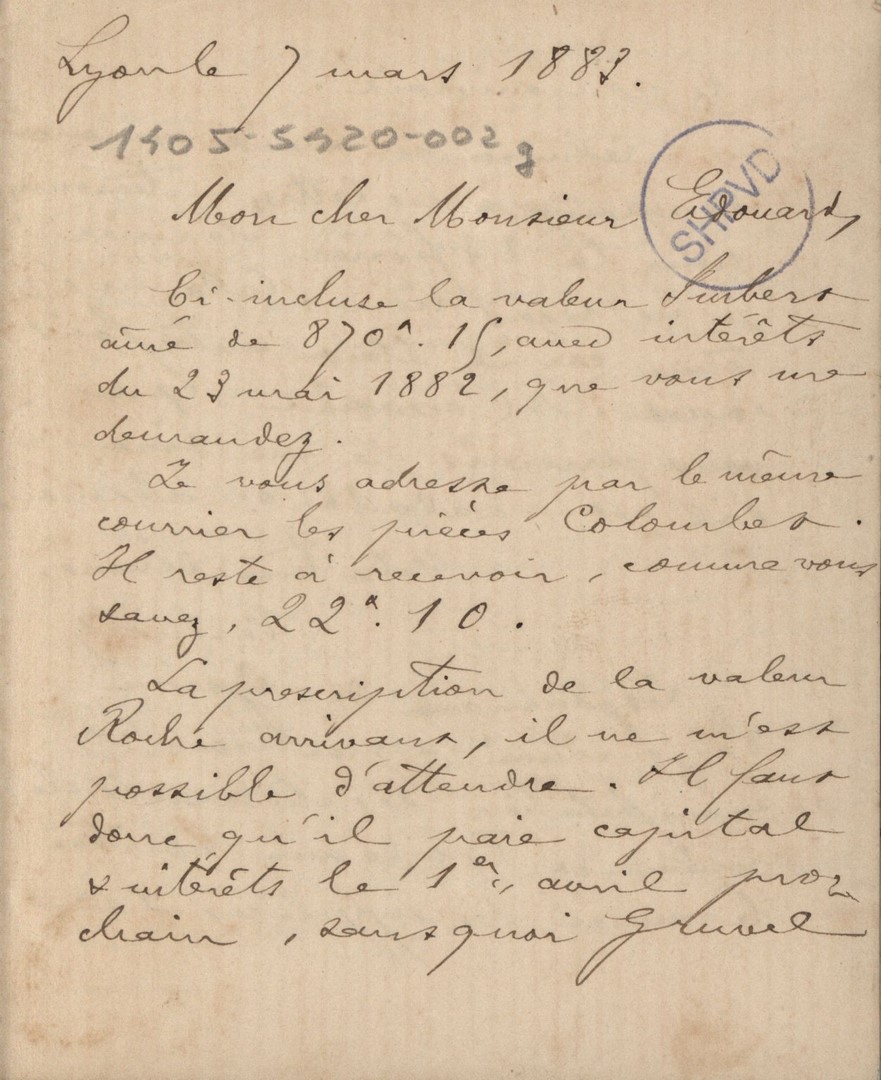 Lyon le 7 mars 1883.
1405-5420-002
SHPVD
Mon cher Monsieur Edouard,
Ci-incluse la valeur Imbert
aîné de 870 f. 15, avec intérêts
du 23 mai 1882, que vous me
demandez.
Je vous adresse par le même
courrier les pièces Colombet.
Il reste à recevoir, comme vous
savez, 22 f. 10.
La prescription de la valeur
Roche arrivant, il ne m'est
possible d'attendre. Il faut
donc qu'il paie capital
& intérêts le 1er avril pro-
chain, sans quoi Gruvel